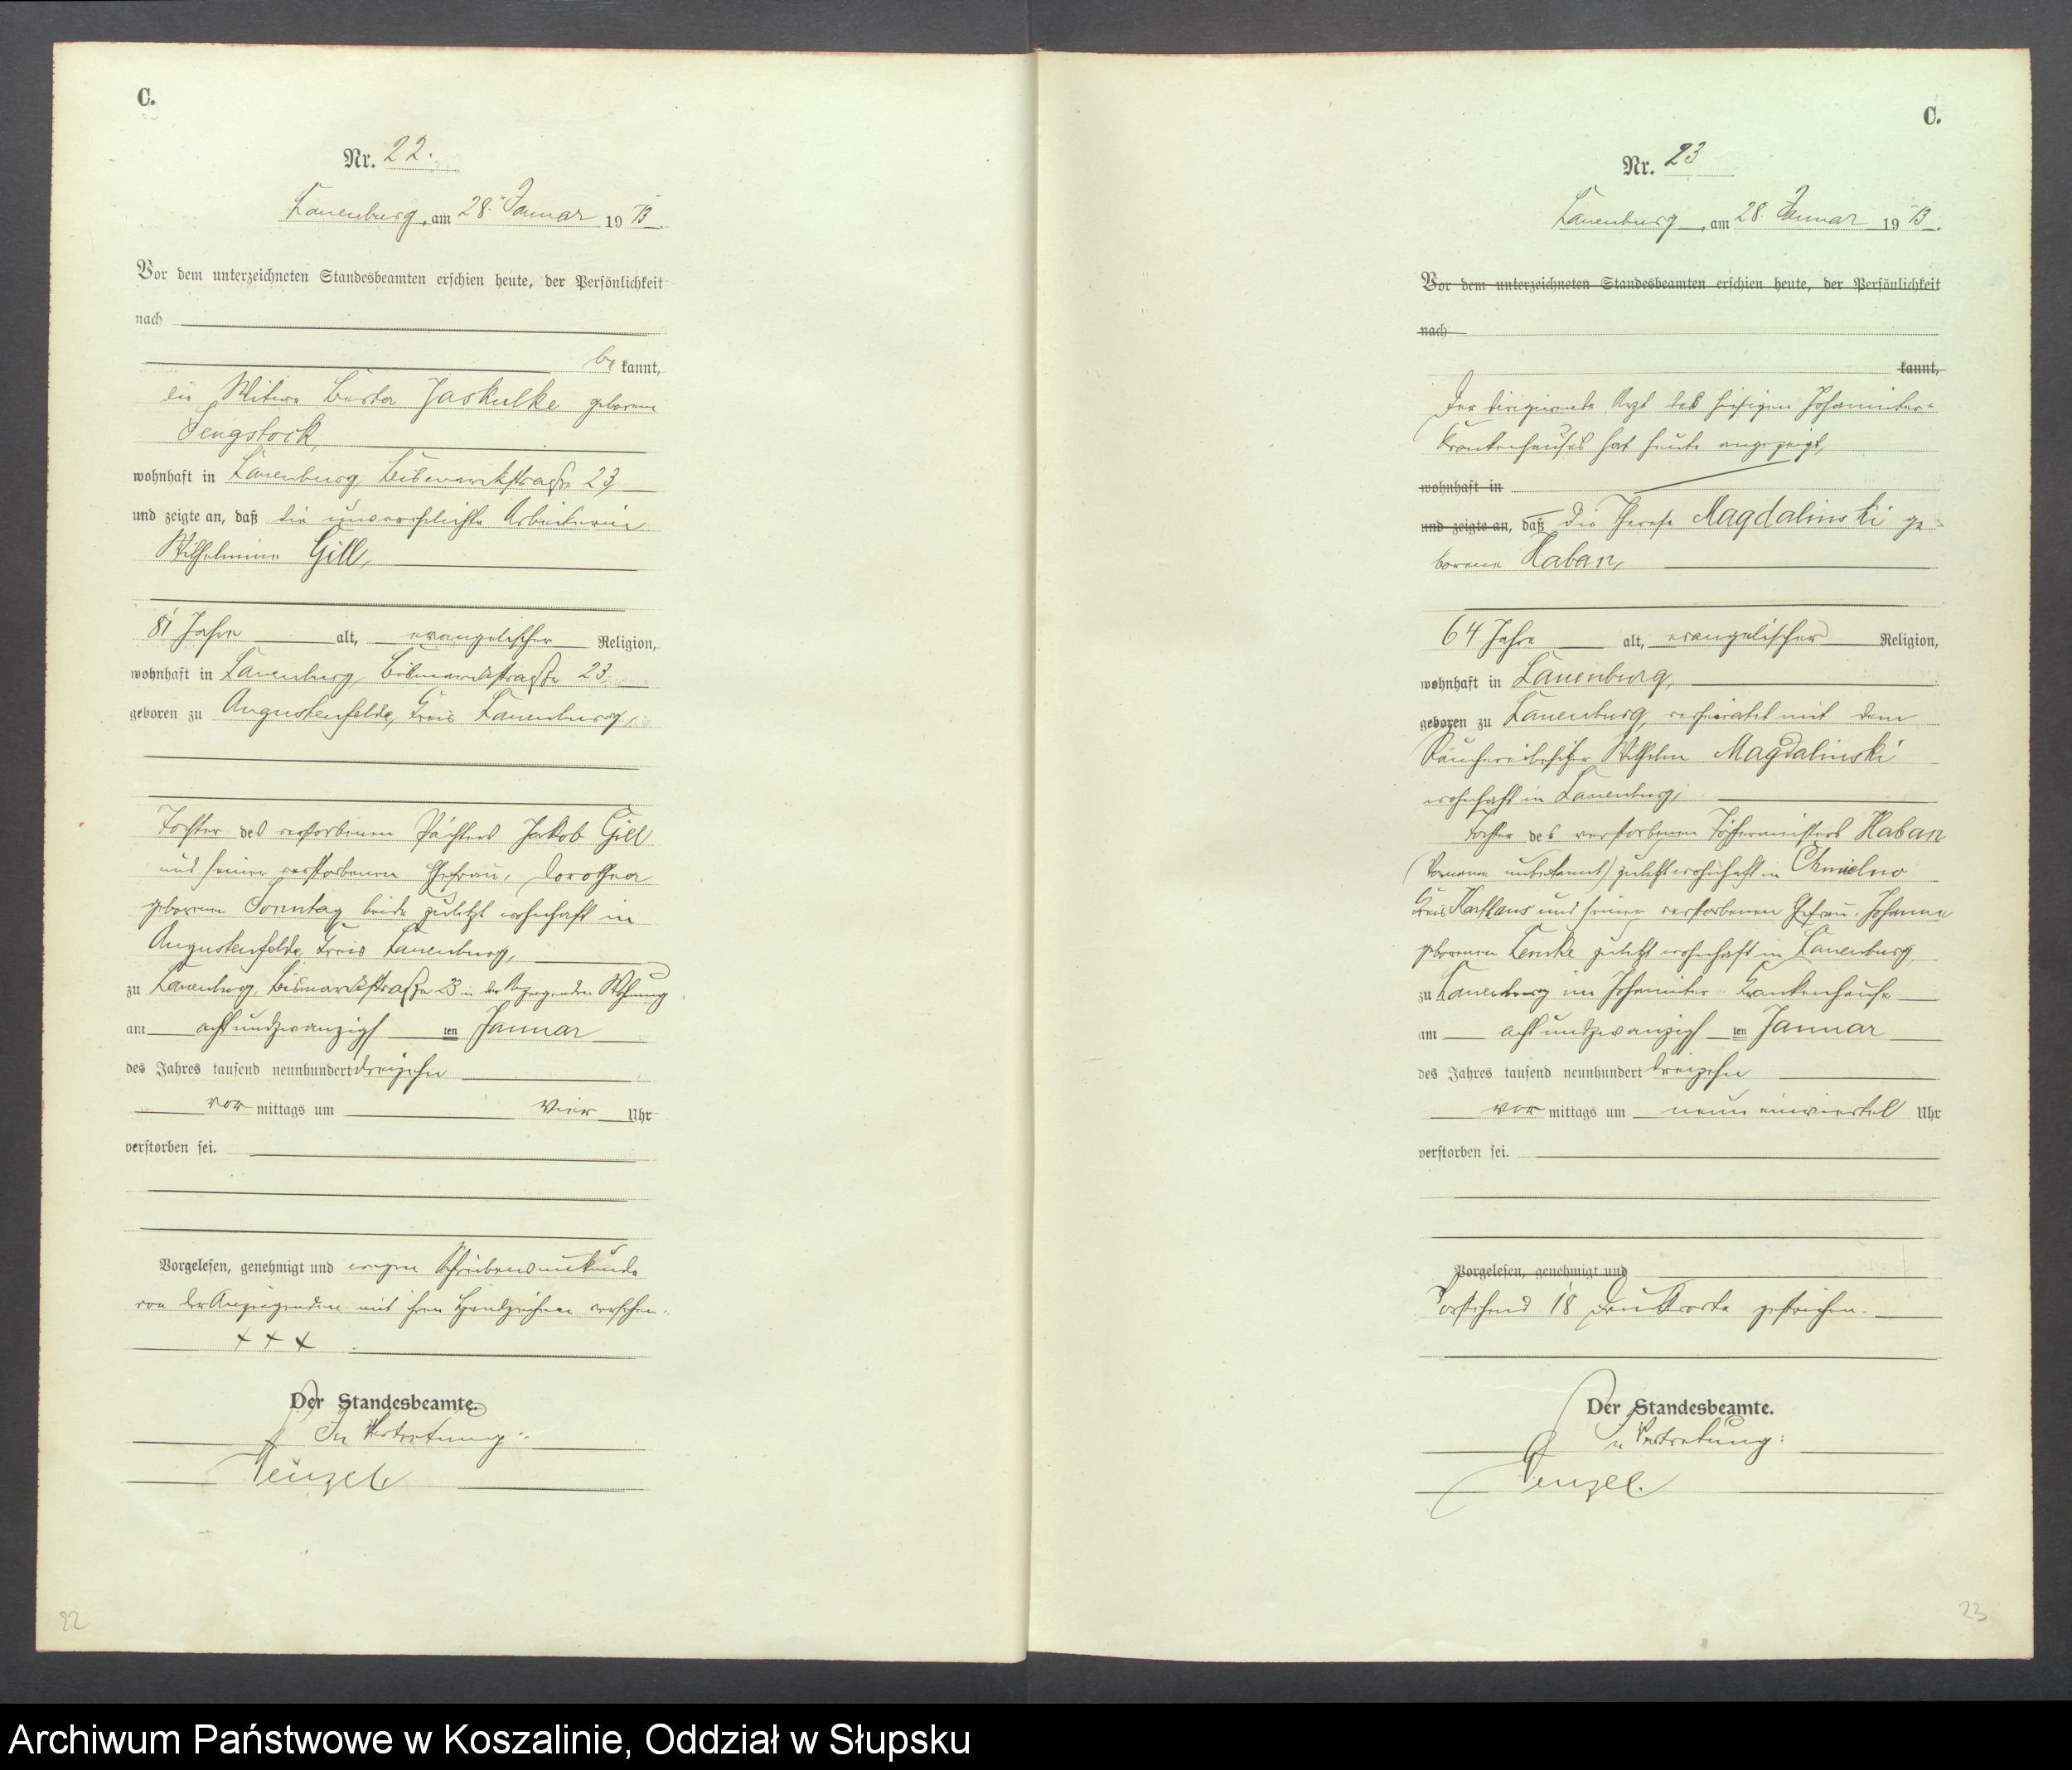 C.
Nr. 22.
Lauenburg, am 28. Januar 1913.
Vor dem unterzeichneten Standesbeamten erschien heute, der Persönlichkeit
nach
be kannt,
die Witwe Berta Jaskulke geborene
Sengstock,
wohnhaft in Lauenburg, Bismarckstraße 23,
und zeigte an, daß die unverehelichte Arbeiterin
Wilhelmine Gill,
81 Jahre alt, evangelischer Religion,
wohnhaft in Lauenburg, Bismarckstraße 23
geboren zu Augustenfelde, Kreis Lauenburg,
Tochter des verstorbenen Pächters Jakob Gill
und seiner verstorbenen Ehefrau, Dorothea
geborenen Sonntag beide zuletzt wohnhaft in
Augustenfelde, Kreis Lauenburg,
zu Lauenburg, Bismarckstraße 23 in der Anzeigenden Wohnung
am achtundzwanzigs ten Januar
des Jahres tausend neunhundert dreizehn
vor mittags um vier Uhr
verstorben sei.
Vorgelesen, genehmigt und wegen Schreibensunkunde
von der Anzeigenden mit ihren Handzeichen versehen.
+ + +
Der Standesbeamte.
In Vertretung:
22
C.
Nr. 23
Lauenburg, am 28. Januar 1913.
Vor dem unterzeichneten Standesbeamten erschien heute, der Persönlichkeit
nach
kannt,
Der dirigierende Arzt des hiesigen Johanniter-
Krankenhauses hat heute angezeigt,
wohnhaft in
und zeigte an, daß die Therese Magdalinski ge-
borene Haban,
64 Jahre alt, evangelischer Religion,
wohnhaft in Lauenburg,
geboren zu Lauenburg, verheiratet mit dem
Räuchereibesitzer Wilhelm Magdalinski
wohnhaft in Lauenburg,
Tochter des verstorbenen Töpfermeisters Haban
(Vorname unbekannt) zuletzt wohnhaft in Chmielno
Kreis Karthaus und seiner verstorbenen Ehefrau, Johanna
geborenen Lemke zuletzt wohnhaft in Lauenburg,
zu Lauenburg im Johanniter-Krankenhause
am achtundzwanzigs ten Januar
des Jahres tausend neunhundert dreizehn
vor mittags um neun einviertel Uhr
verstorben sei.
Vorgelesen, genehmigt und
Vorstehend 18 Druckworte gestrichen.
Der Standesbeamte.
In Vertretung:
23
Archiwum Państwowe w Koszalinie, Oddział w Słupsku